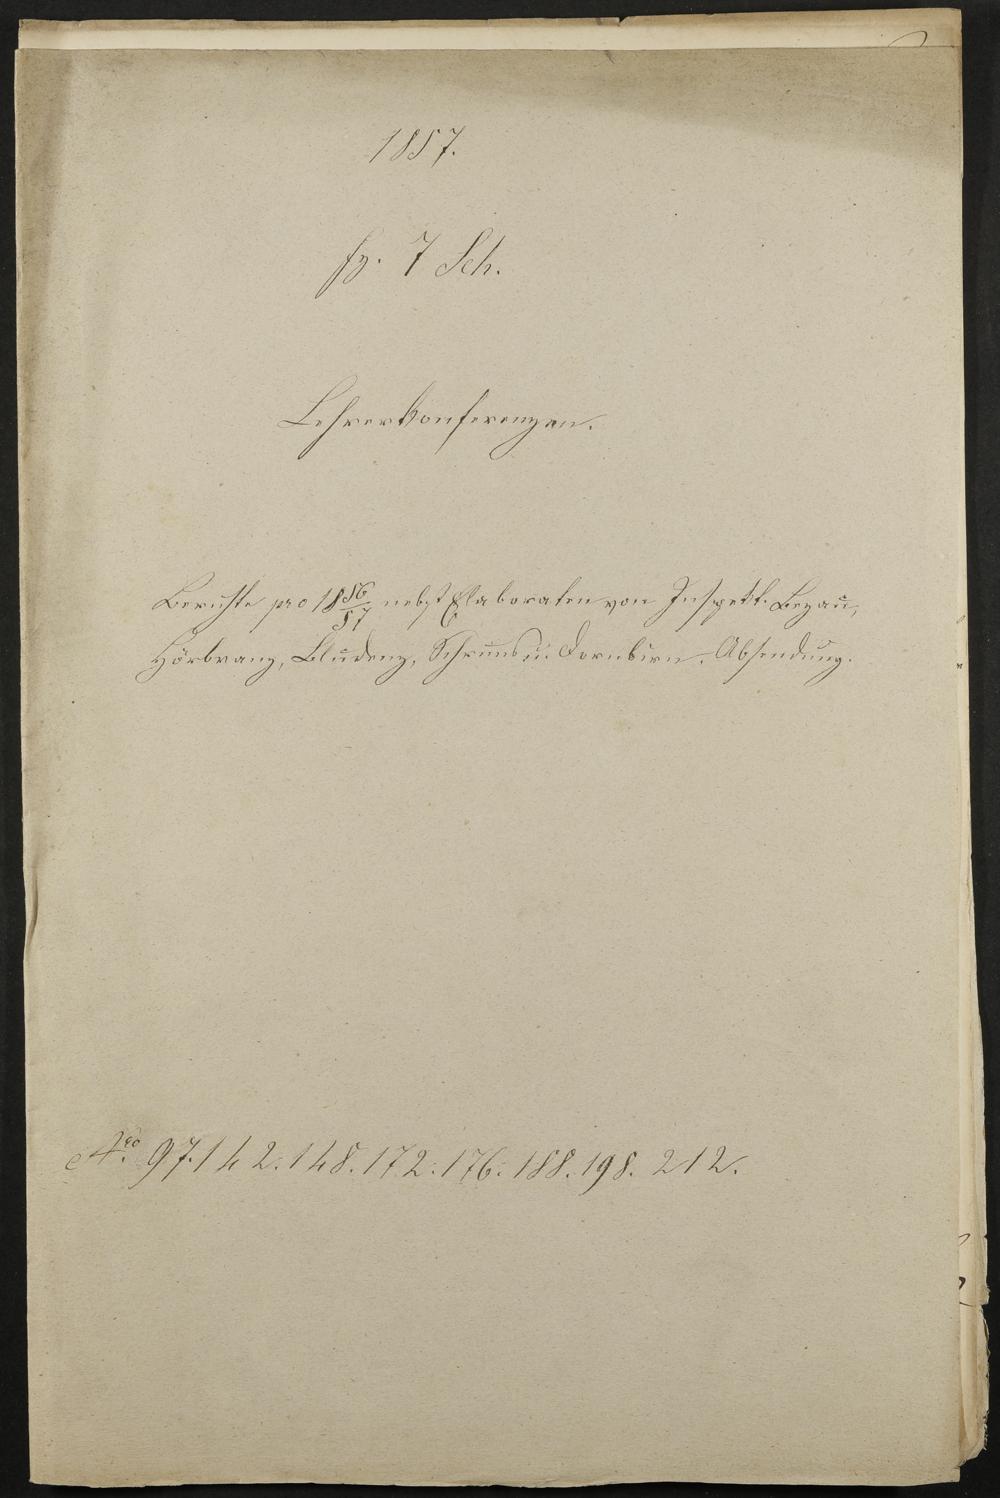 1857.
fz. 7 Sch.
Lehrerkonferenzen.
Berichte pro 1856/57 nebst Elaboraten von Inspekt. Bezau,
Hörbranz, Bludenz, Schruns u. Dornbirn. Absendung.
Nro. 97. 142. 148. 172. 176. 188. 198. 212.